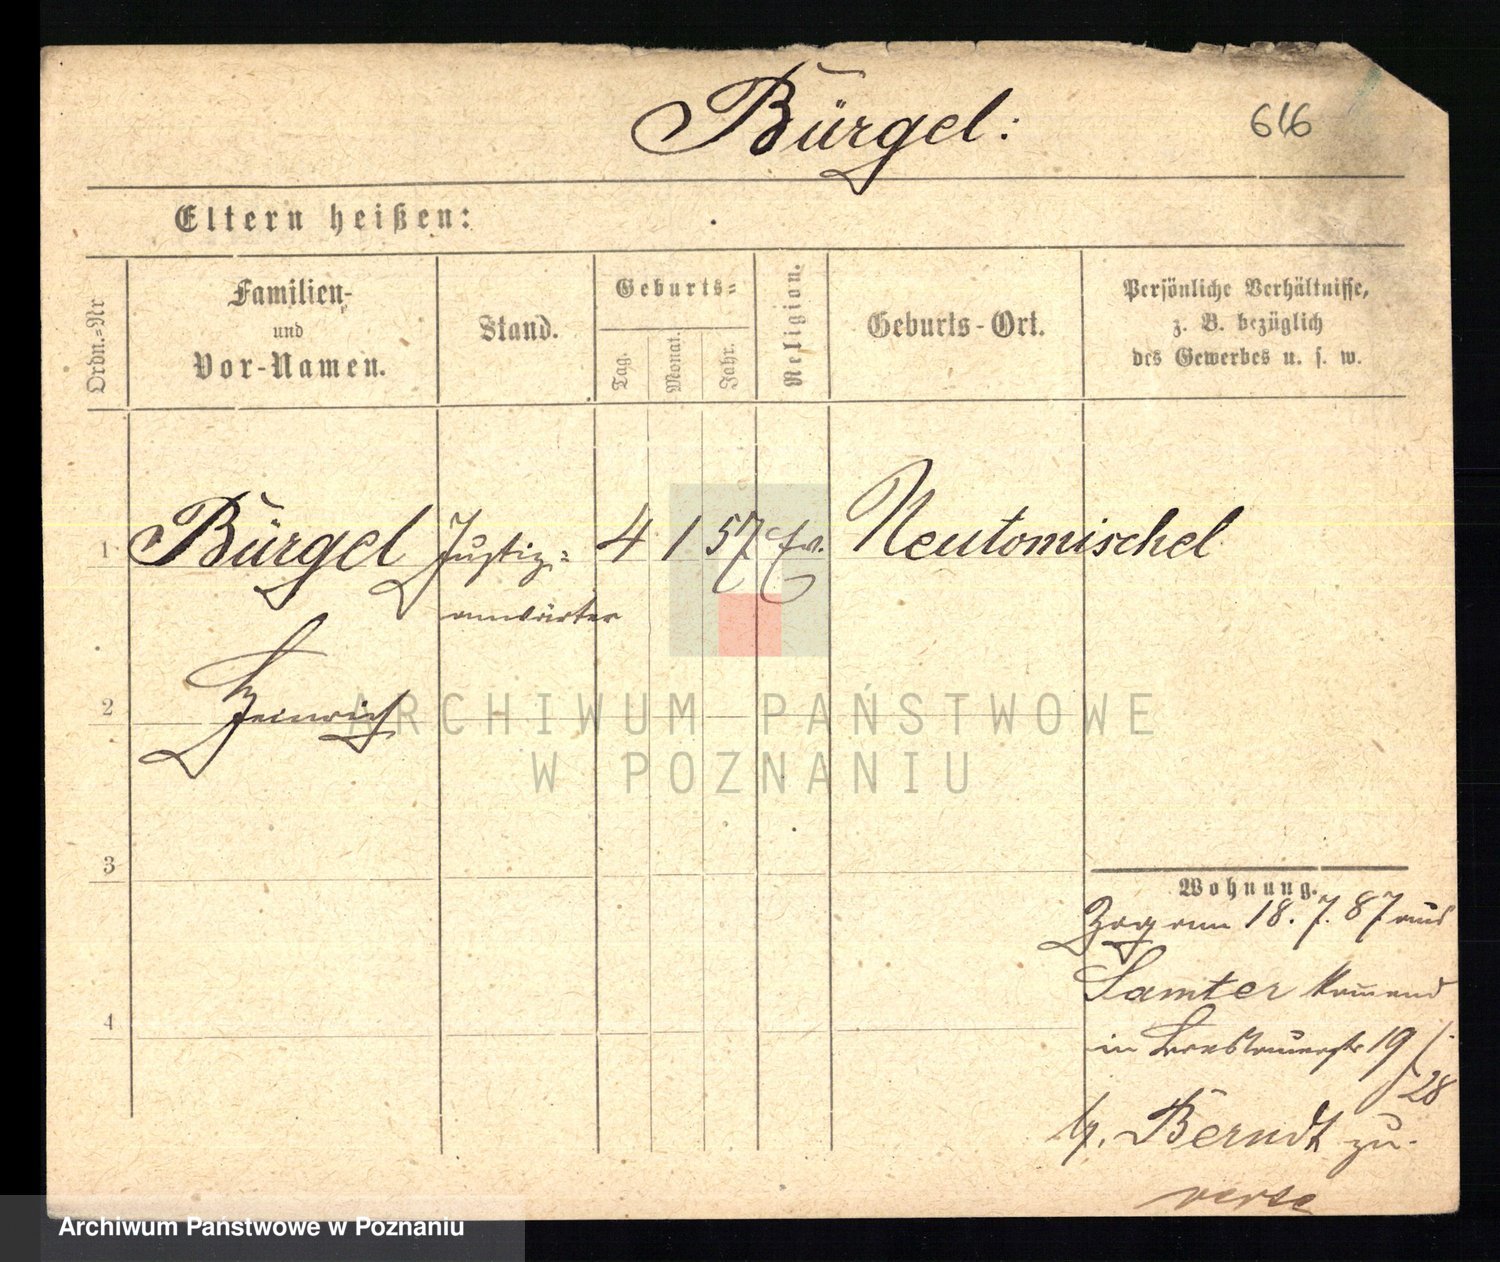 Bürgel:
616
Eltern heißen:
Ordn.-Nr
Familien-
und
Vor-Namen.
Stand.
Geburts-
Tag.
Monat.
Jahr.
Religion.
Geburts-Ort.
Persönliche Verhältnisse,
z. B. bezüglich
des Gewerbes u. s. w.
1 Bürgel Justiz- 4 1 57 Ev. Neutomischel
anwärter
2 Heinrich
3
4
Wohnung.
Zog am 18. 7. 87 aus
Samter
in 19
28
b. Berndt zu.
verse
ARCHIWUM PAŃSTWOWE
W POZNANIU
Archiwum Państwowe w Poznaniu